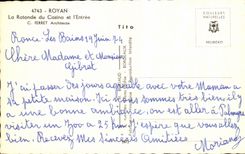 4743 - ROYAN
La Rotonde du Casino et l'Entrée
C. FERRET Architecte
COULEURS
NATURELLES
Tito
Ronce Les Bains 19 Juin 74
Chère Madame et Monsieur
Gibrat
J'ai passé des jours agréable avec votre Maman
sa petite maison. Ici nous sommes très bien, il y
a une bonne ambiance, on est aller à Palmyre
visiter un Zoo à 25 km. J'espère que vous allez
bien. Recevez Mes Sincères Amitiées